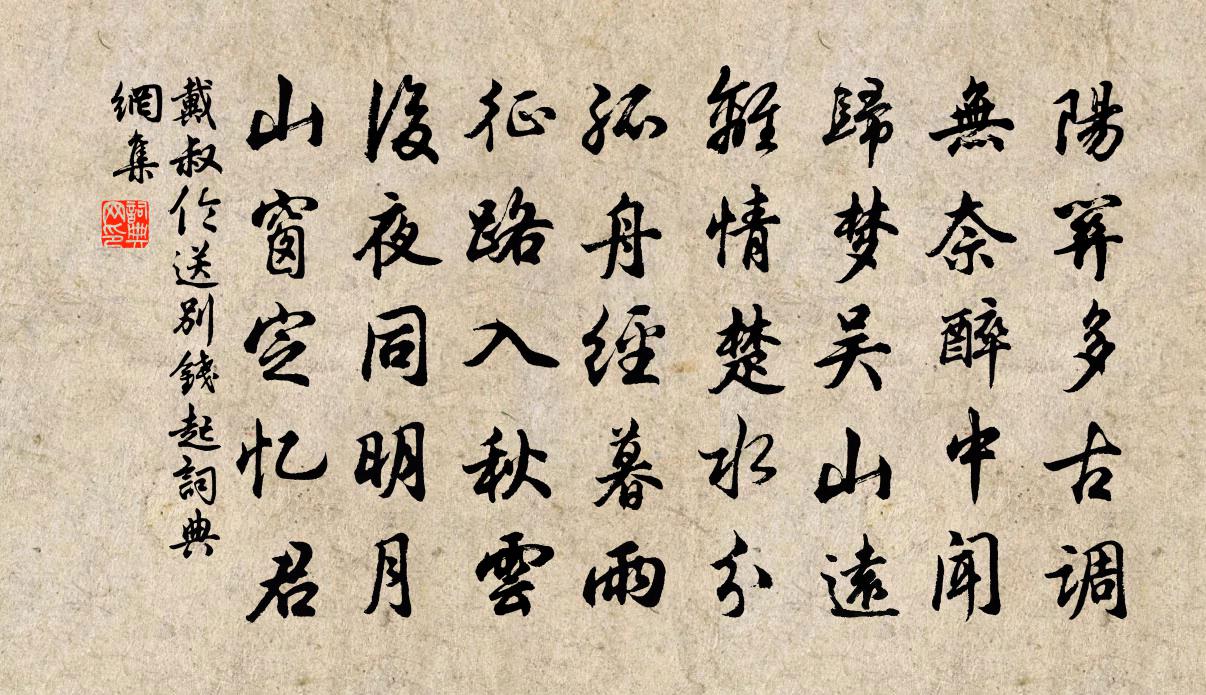 陽關多古調
無奈醉中聞
歸梦吴山遠
離情楚水分
孤舟經暮雨
征路入秋雲
後夜同明月
山窗定忆君
戴叔伦送别錢起詞典
網集
詞典網印